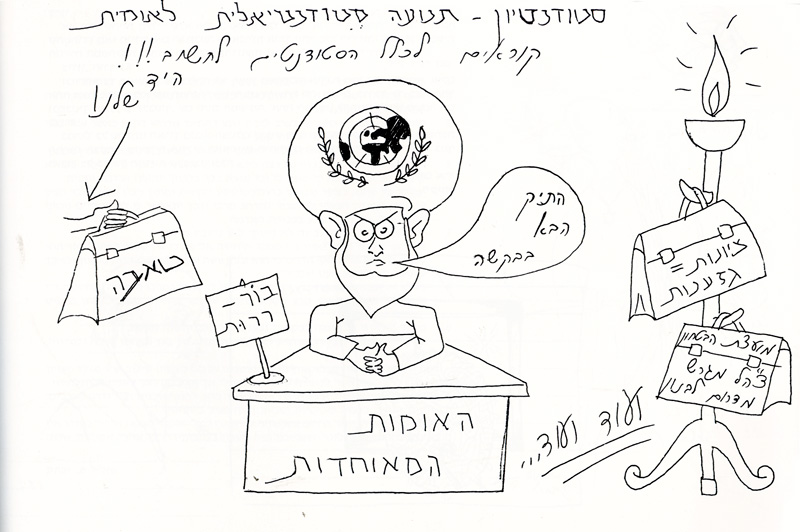 סטודנטיון - תנועה סטודנטיאלית לאומית
קוראים לכלל הסטודנטים לחשוב!!!
היד
שלנו
התיק
הבא
בבקשה
ציונות =
גזענות
בור -
ררות
מועצת הבטחון
צה"ל מגרש
מדרום לבנון
האומות
המאוחדות
ועוד ועוד...